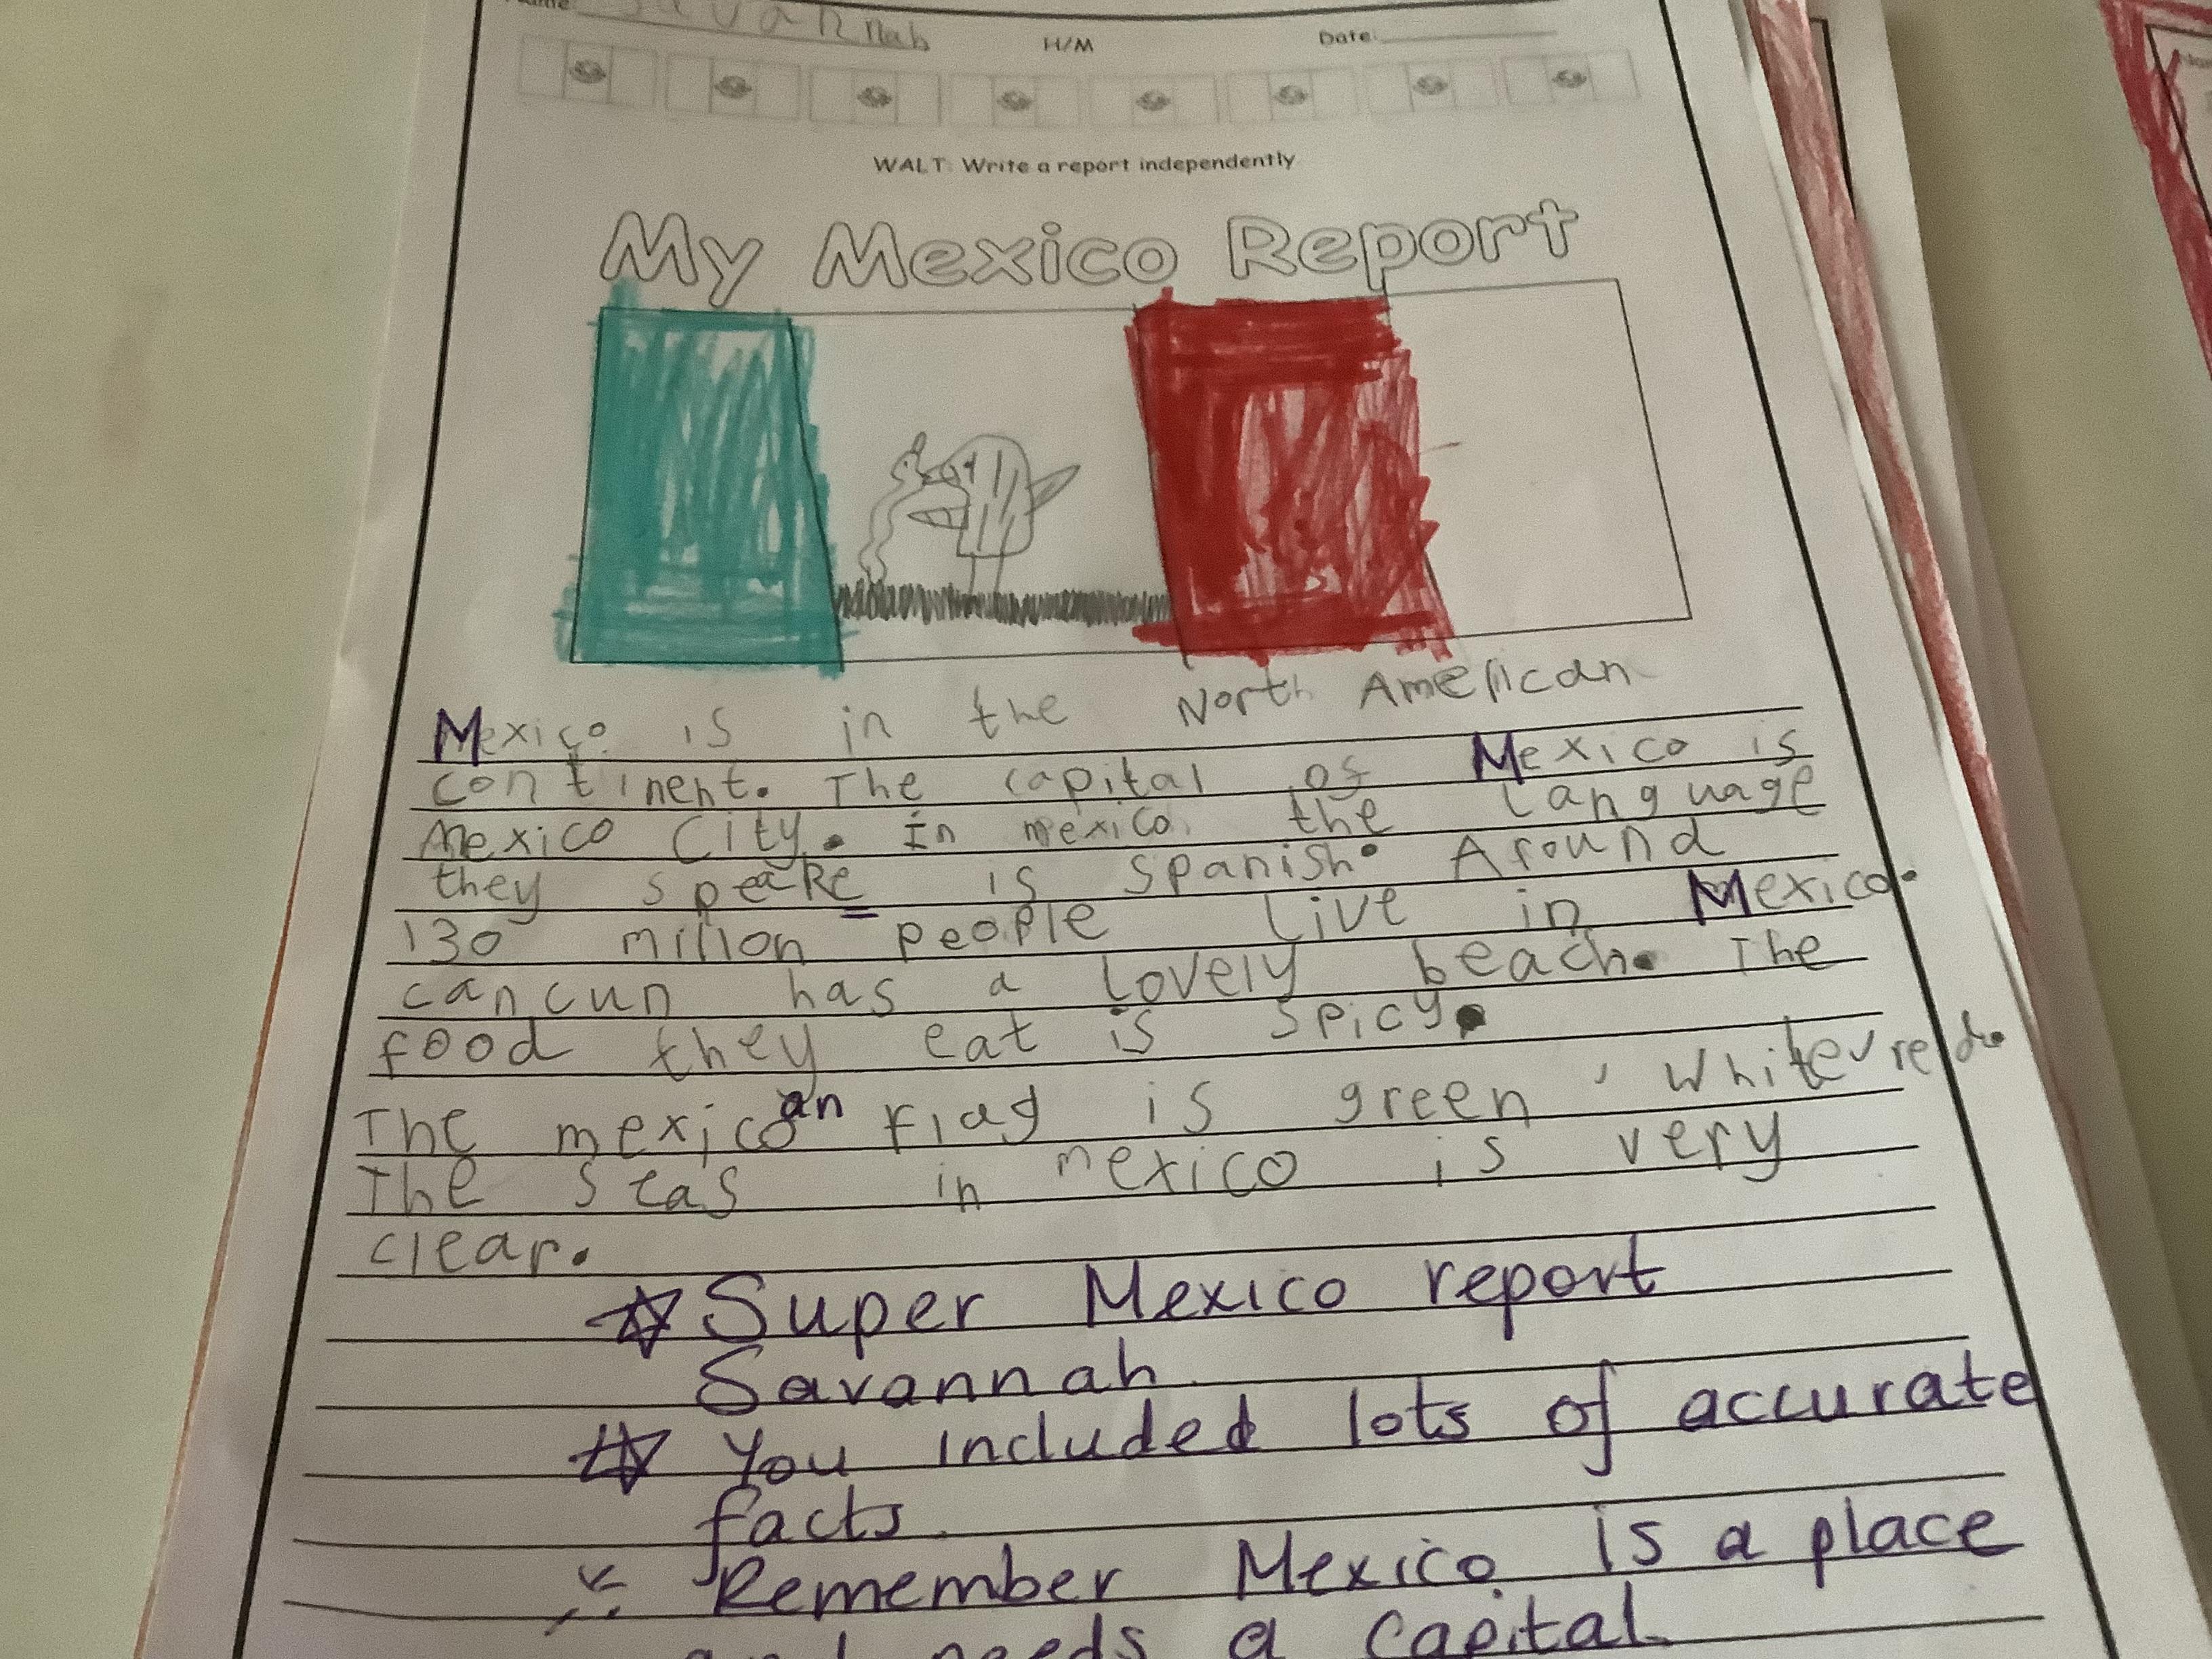 Name: Savannah H/M Date:
WALT: Write a report independently
My Mexico Report
Mexico is in the North American
continent. The capital of Mexico is
Mexico City. In mexico the language
they speake is Spanish. Around
130 millon people live in Mexico.
cancun has a lovely beach. The
food they eat is spicy.
The mexican flag is green, white, red.
The seas in mexico is very
clear.
Super Mexico report
Savannah.
You included lots of accurate
facts.
Remember Mexico is a place
and needs a capital